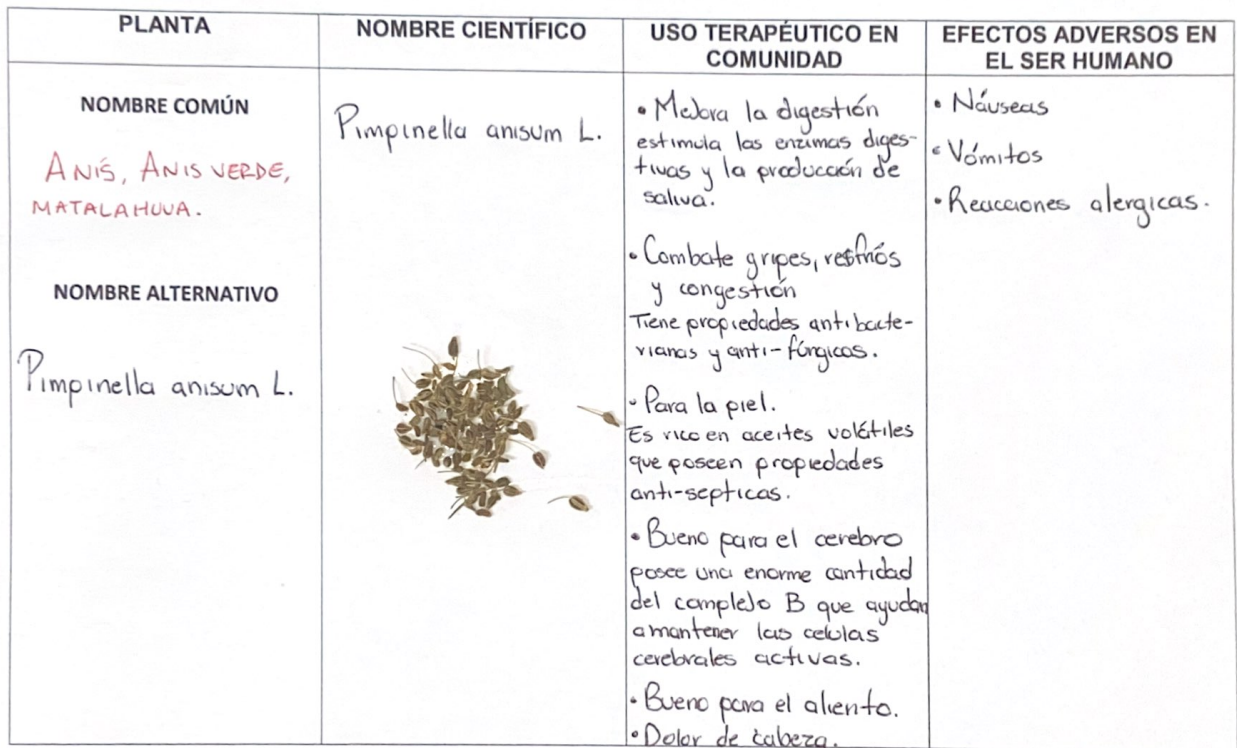 PLANTA
NOMBRE CIENTÍFICO
USO TERAPÉUTICO EN
COMUNIDAD
EFECTOS ADVERSOS EN
EL SER HUMANO
NOMBRE COMÚN
ANÍS, ANIS VERDE,
MATALAHUVA.
NOMBRE ALTERNATIVO
Pimpinella anisum L.
Pimpinella anisum L.
• Mejora la digestión
estimula las enzimas diges-
tivas y la producción de
saliva.
• Combate gripes, resfriós
y congestión
Tiene propiedades antibacte-
rianas y anti-fúngicos.
• Para la piel.
Es rico en aceites volátiles
que poseen propiedades
anti-septicas.
• Bueno para el cerebro
posee una enorme cantidad
del complejo B que ayudan
a mantener las celulas
cerebrales activas.
• Bueno para el aliento.
• Dolor de cabeza.
• Náuseas
• Vómitos
• Reacciones alergicas.